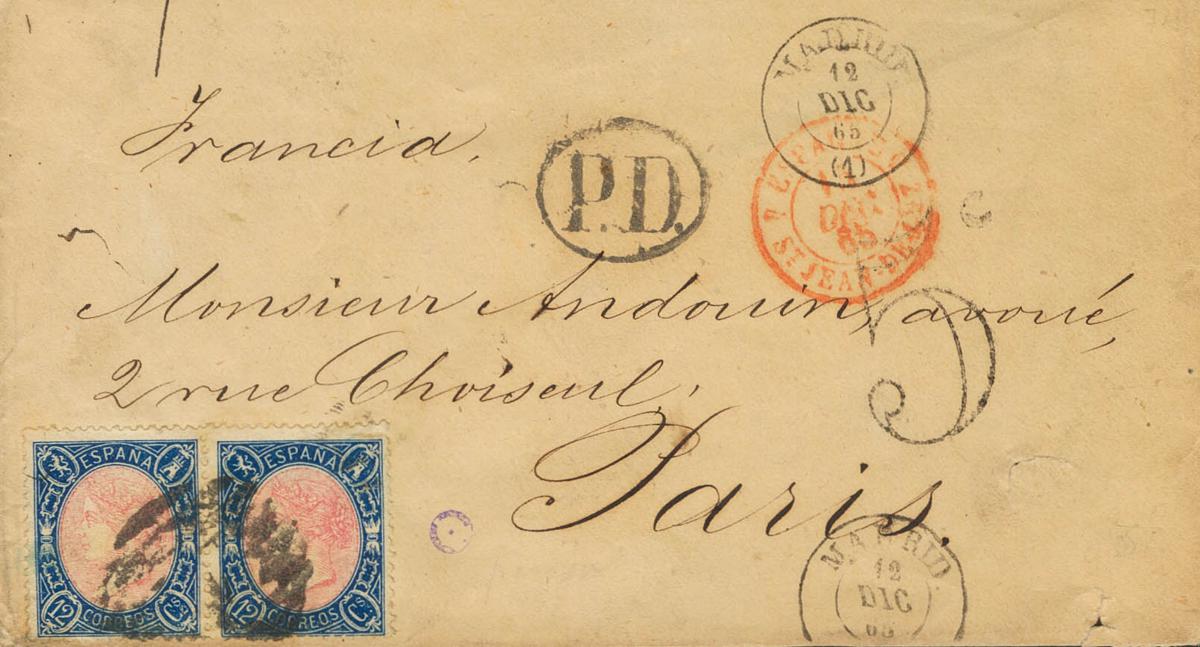 MADRID
12
DIC
65
(1)
Francia.
P.D.
DEC.
65
ST JEAN-DE-LUZ
Monsieur Andouin, avoué,
2 rue Choiseul,
Paris.
ESPAÑA
12 CORREOS Cs.
ESPAÑA
12 CORREOS Cs.
MADRID
12
DIC
65